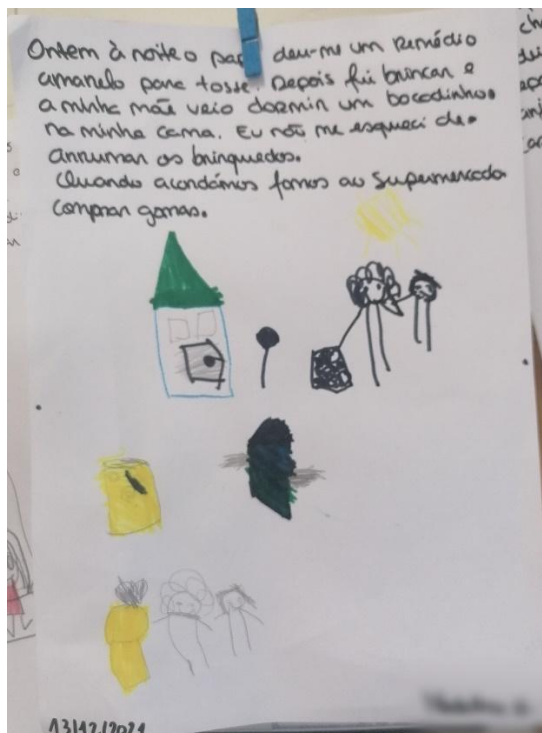 Ontem à noite o pai deu-me um remédio
amarelo para tosse. Depois fui brincar e
a minha mãe veio dormir um bocadinho
na minha cama. Eu não me esqueci de
arrumar os brinquedos.
Quando acordámos fomos ao supermercado
comprar gomas.
13/12/2021